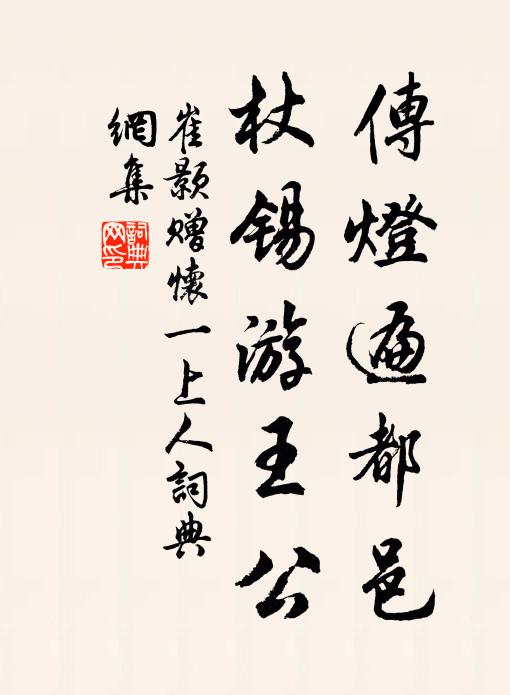 傳燈遍都邑
杖錫游王公
崔颢贈懷一上人詞典
網集
詞典網印